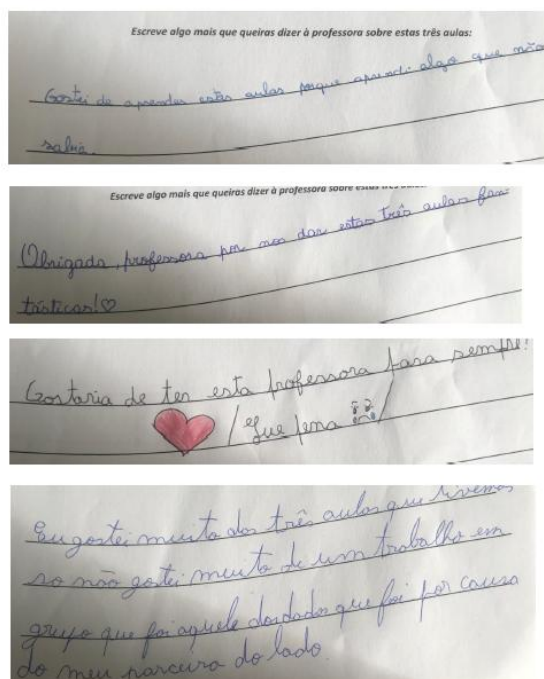 Escreve algo mais que queiras dizer à professora sobre estas três aulas:
Gostei de aprender estas aulas porque aprendi algo que não
sabia.
Escreve algo mais que queiras dizer à professora sobre estas três aulas:
Obrigada, professora por nos dar estas três aulas fan-
tásticas!♡
Gostaria de ter esta professora para sempre!
/Que pena /
Eu gostei muito das três aulas que tivemos
so não gostei muito de um trabalho em
grupo que foi aquele dos dados que foi por causa
do meu parceiro do lado.